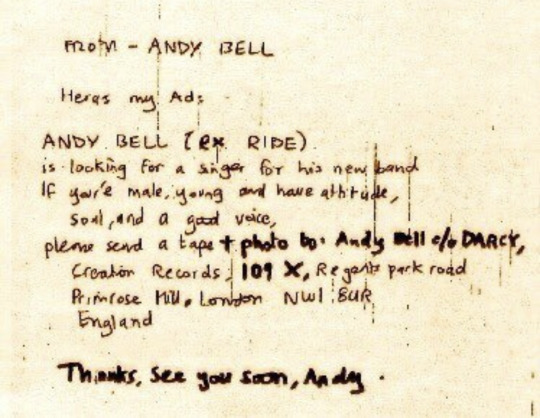 From - ANDY BELL
Heres my Ad:
ANDY BELL (ex RIDE)
is looking for a singer for his new band
If you're male, young and have attitude,
soul, and a good voice,
please send a tape + photo to: Andy Bell c/o DARCY,
Creation Records, 109 X, Regents park road
Primrose Hill, London NW1 8UR
England
Thanks, See you soon, Andy.